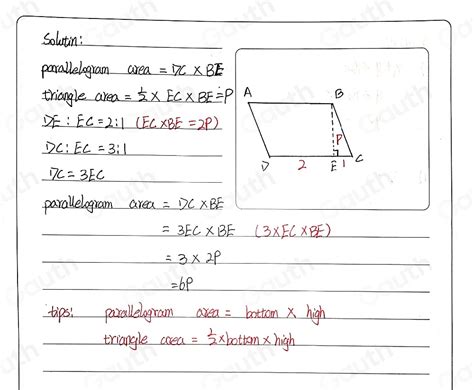 Solutin:
parallelogram area = DC × BE
triangle area = ½ × EC × BE = P
DE : EC = 2:1 (EC×BE = 2P)
DC : EC = 3:1
DC = 3EC
parallelogram area = DC × BE
= 3EC × BE (3×EC×BE)
= 3 × 2P
= 6P
tips: parallelogram area = bottom × high
triangle area = ½ × bottom × high
A B
P
D 2 E 1 C
Gauth